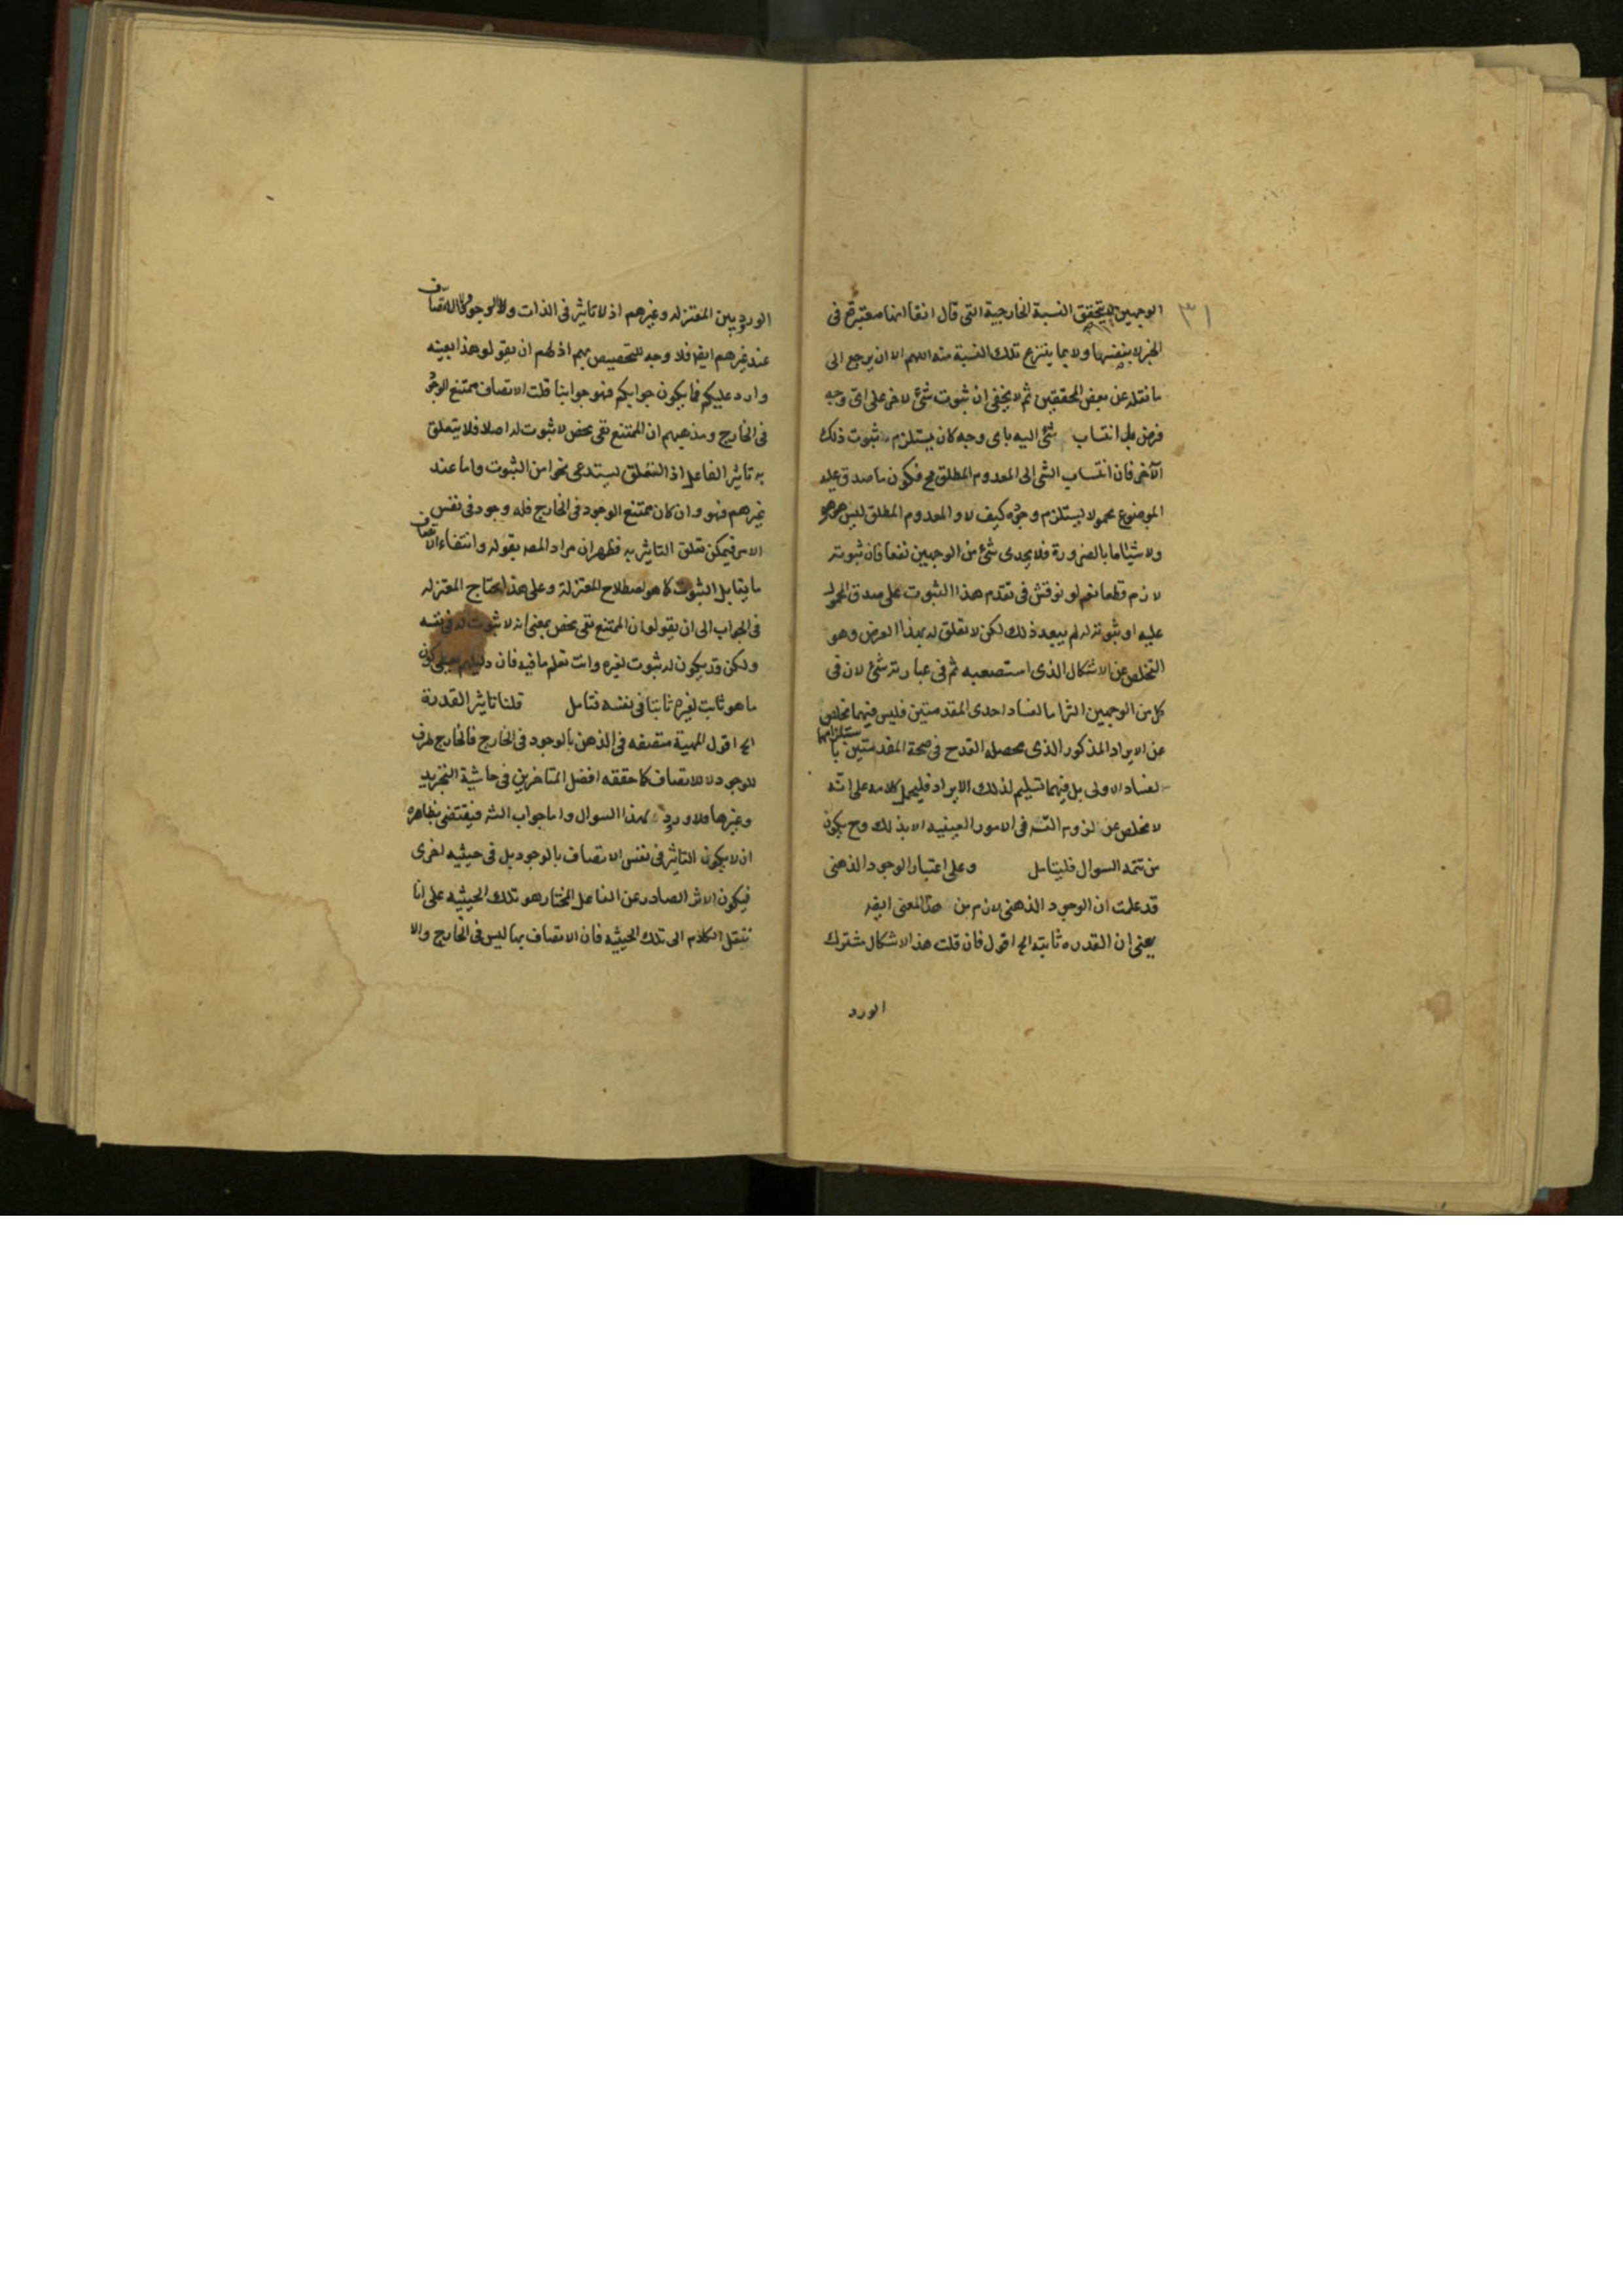 ٣١
الوجهين لا يتحقق النسبة الخارجية التى قال انفا انها معتبرة فى
الخبر لا بنفسها ولا بما ينتزع تلك النسبة منه اللهم الا ان يرجع الى
ما نقله عن بعض المحققين ثم لا يخفى ان ثبوت شئ لاخر على اى وجه
فرض بل انتساب شئ اليه باى وجه كان يستلزم ثبوت ذلك
الآخر فان انتساب الشى الى المعدوم المطلق مح فكون ما صدق عليه
الموضوع محمولا يستلزم وجوده كيف لا و المعدوم المطلق ليس هو هو
ولا شيئا ما بالضرورة فلا يجدى شئ من الوجهين نفعا فان ثبوته
لازم قطعا نعم لو نوقش فى تقدم هذا الثبوت على صدق المحمول
عليه او ثبوته له لم يبعد ذلك لكن لا تعلق له بهذا الغرض وهو
التخلص عن الاشكال الذى استصعبه ثم فى عبارته شئ لان فى
كل من الوجهين التزاما لفساد احدى المقدمتين فليس فيهما تخلص
عن الايراد المذكور الذى محصله القدح فى صحة المقدمتين با ستلزامها
لفساد الاولى بل فيهما تسليم لذلك الايراد فليحمل كلامه على انه
لا مخلص عن لزوم التسه فى الامور العينيه الا بذلك وح يكون
من تتمه السوال فليتامل وعلى اعتبار الوجود الذهنى
قد علمت ان الوجود الذهنى لازم من هذا المعنى ايضه
يعنى ان القدره ثابته الخ اقول فان قلت هذا الاشكال مشترك
الورد
الورود بين المعتزله وغيرهم اذ لا تاثير فى الذات ولا الوجود ولا الاتصاف
عند غيرهم ايضا فلا وجه للتخصيص بهم اذ لهم ان يقولو هذا بعينه
وارد عليكم فما يكون جوابكم فهو جوابنا قلت الاتصاف ممتنع الوجود
فى الخارج ومذهبهم ان الممتنع نفى محض لا ثبوت له اصلا فلا يتعلق
به تاثير الفاعل اذ التعلق يستدعى نحوا من الثبوت واما عند
غيرهم فهو وان كان ممتنع الوجود فى الخارج فله وجود فى نفس
الامر فيمكن تعلق التاثير به فظهر ان مراد المصه بقوله وانتفاء الاتصاف
ما يقابل الثبوت كما هو اصطلاح المعتزلة وعلى هذا يحتاج المعتزله
فى الجواب الى ان يقولوا ان الممتنع نفى محض بمعنى انه لا ثبوت له فى نفسه
ولكن قد يكون له ثبوت لغيره وانت تعلم ما فيه فان دليلهم كون
ما هو ثابت لغيره ثابتا فى نفسه فتامل قلنا تاثير القدرة
الخ اقول المهية متصفه فى الذهن بالوجود فى الخارج فالخارج ظرف
للوجود لا للاتصاف كما حققه افضل المتاخرين فى حاشية التجريد
وغيرها فلا ورود لهذا السوال واما جواب الشه فيقتضى بظاهره
ان لا يكون التاثير فى نفس الاتصاف بالوجود بل فى حيثيه اخرى
فيكون الاثر الصادر عن الفاعل المختار هو تلك الحيثيه على انا
ننقل الكلام الى تلك الحيثيه فان الاتصاف بها ليس فى الخارج والا